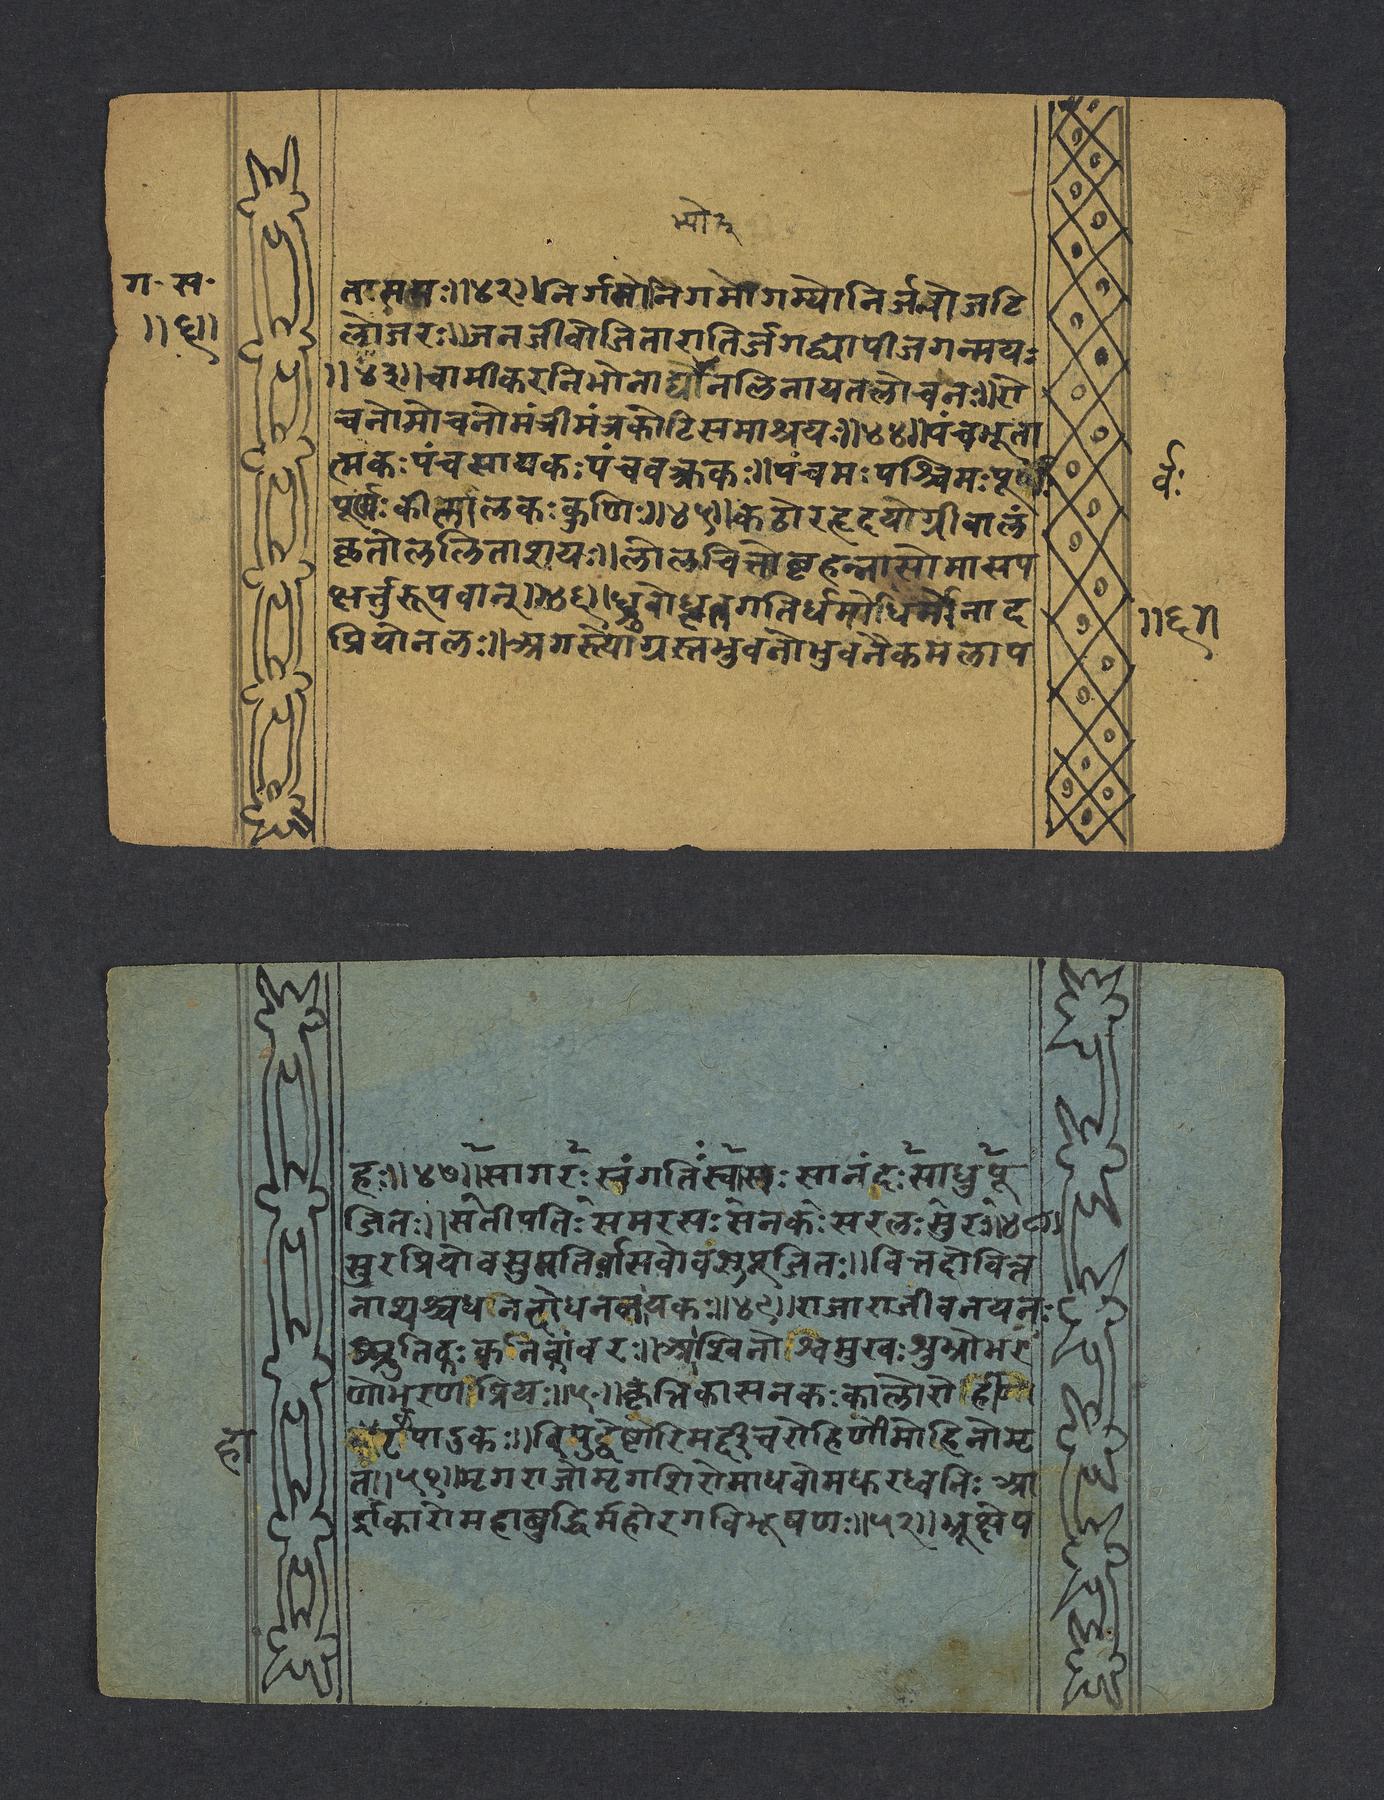 ग॰ स॰
॥६॥
तःसमः॥४२॥निर्गमोनिगमोगम्योनिर्जलोजटि
लोजरः॥जनजीवोजितारातिर्जगद्व्यापीजगन्मयः
॥४३॥चामीकरनिभोनाद्योनलिनायतलोचनः॥रो
चनोमोचनोमंत्रीमंत्रकोटिसमाश्रयः॥४४॥पंचभूता
त्मकःपंचसायकःपंचवक्त्रकः॥पंचमःपश्चिमःपूर्वः
र्वः
पूर्णःकीर्त्तालकःकुणिः॥४५॥कठोरहृदयोग्रीवालं
कृतोललिताशयः॥लोलचित्तोबृहन्नासोमासप
क्षर्त्तुरूपवान्॥४६॥ध्रुवोध्रुवगतिर्धर्मोधर्मोनाद
॥६॥
प्रियोनलः॥अगस्त्योग्रस्तभुवनोभुवनैकमलाप
हः॥४७॥सागरःस्वंगतिःस्वक्षःसानंदःसाधुपू
जितः॥सतीपतिःसमरसःसनकःसरलःसुरः॥४८॥
सुरप्रियोवसुमतिर्वासवोवसुपूजितः॥वित्तदोवित्त
नाथश्चधनिनांधनदायकः॥४९॥राजाराजीवनयनः
स्मृतिदःकृतिनांवरः॥अश्विनोश्विमुखःशुभ्रोभर
णोभरणीप्रियः॥५०॥कृत्तिकासनकःकालोरोहि
हो
पाऽकः॥रोहिणीमोहिनोमृ
तः॥५१॥मृगराजोमृगशिरोमाधवोमधुरध्वनिः आ
र्द्राकारोमहाबुद्धिर्महोरगविभूषणः॥५२॥भ्रूक्षेप